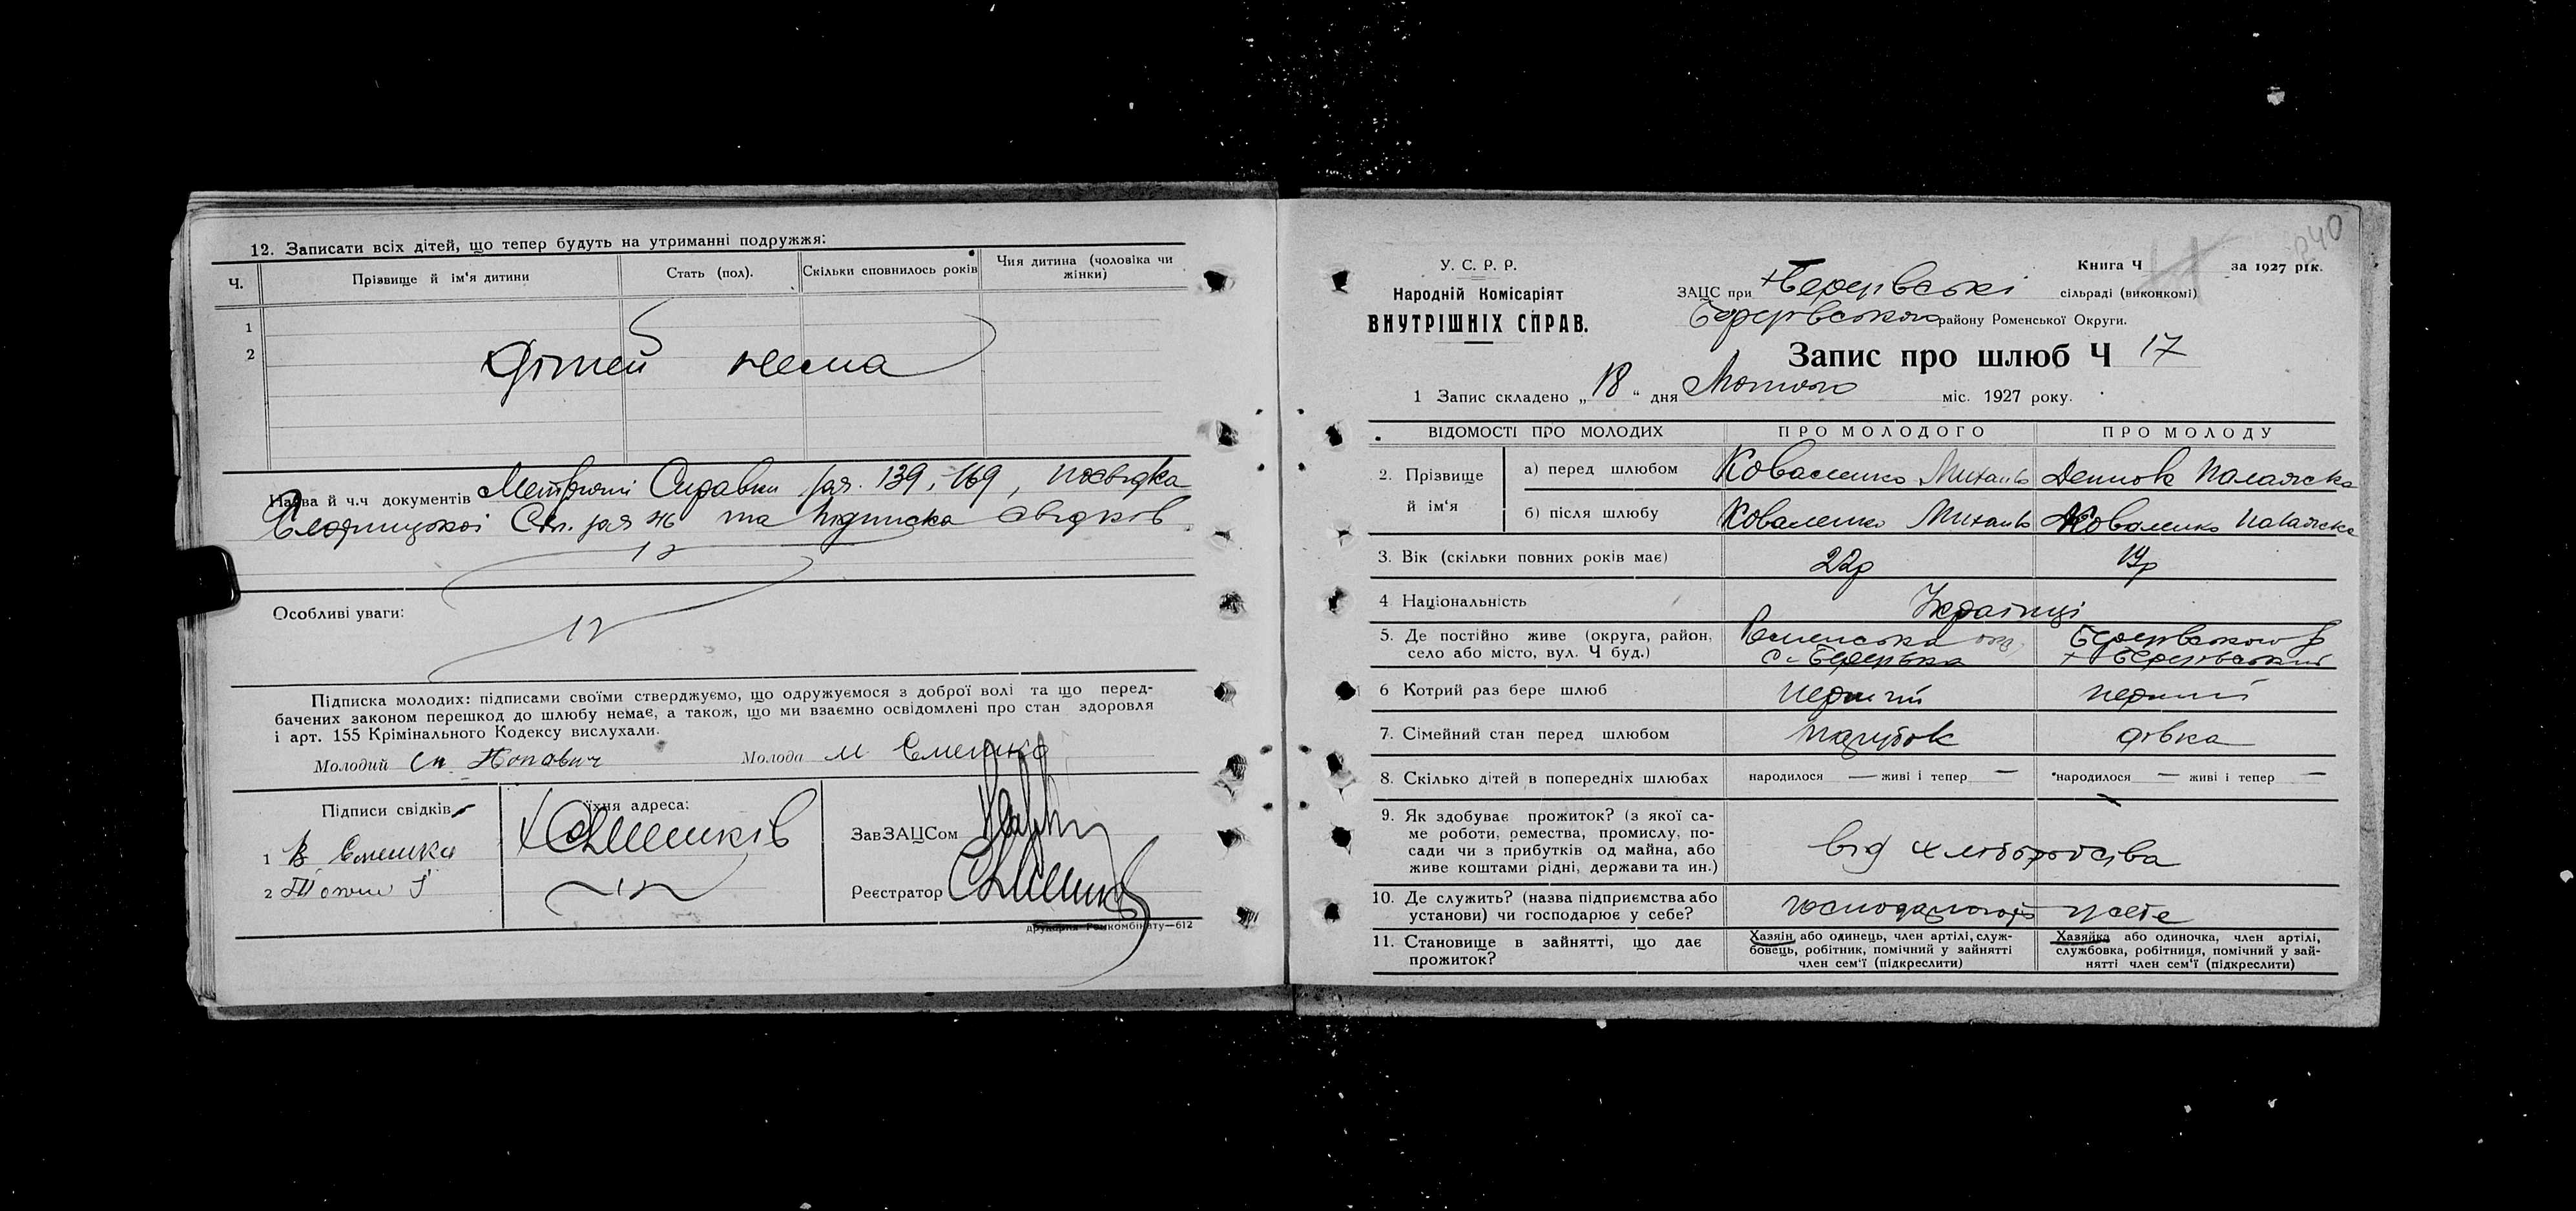 12. Записати всіх дітей, що тепер будуть на утриманні подружжя:
Ч. Прізвище й ім'я дитини Стать (пол). Скільки сповнилось років Чия дитина (чоловіка чи жінки)
1
2
Дітей нема
Назва й ч.ч документів Метричні Справки 139, 169, посвідка
та підписка свідків
Особливі уваги:
Підписка молодих: підписами своїми стверджуємо, що одружуємося з доброї волі та що перед-
бачених законом перешкод до шлюбу немає, а також, що ми взаємно освідомлені про стан здоровля
і арт. 155 Крімінального Кодексу вислухали.
Молодий Сп Попавич Молода М Ємешко
Підписи свідків їхня адреса:
ЗавЗАЦСом
1 В Ємешка
2
Реєстратор
друкарня Ромкомбінату—612
240
У. С. Р. Р.
Народній Комісаріят
ВНУТРІШНІХ СПРАВ.
Книга Ч за 1927 рік.
ЗАЦС при сільраді (виконкомі)
району Роменської Округи.
Запис про шлюб Ч 17
1 Запис складено „18" дня Лютого міс. 1927 року.
ВІДОМОСТІ ПРО МОЛОДИХ ПРО МОЛОДОГО ПРО МОЛОДУ
2. Прізвище й ім'я
а) перед шлюбом Коваленко Михайло Палажка
б) після шлюбу Коваленко Михайло Коваленко Палажка
3. Вік (скільки повних років має) 22р 19р
4 Національність Українці
5. Де постійно живе (округа, район, село або місто, вул. Ч буд.) Роменська
6 Котрий раз бере шлюб перший перший
7. Сімейний стан перед шлюбом парубок дівка
8. Скілько дітей в попередніх шлюбах народилося — живі і тепер — народилося — живі і тепер —
9. Як здобуває прожиток? (з якої са-
ме роботи, ремества, промислу, по-
сади чи з прибутків од майна, або
живе коштами рідні, держави та ин.)
від хліборобства
10. Де служить? (назва підприємства або
установи) чи господарює у себе?
господарюють у себе
11. Становище в зайнятті, що дає
прожиток?
Хазяін або одинець, член артілі, служ-
бовець, робітник, помічний у зайнятті
член сем'ї (підкреслити)
Хазяйка або одиночка, член артілі,
службовка, робітниця, помічний у зай-
нятті член сем'ї (підкреслити)